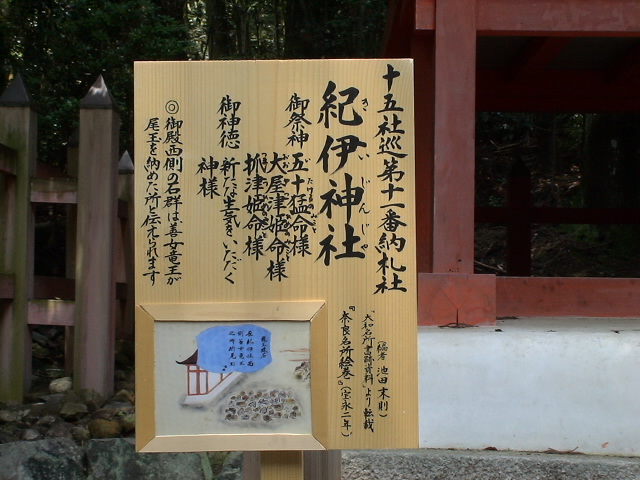 十五社巡第十一番納札社
紀伊神社
きいじんじゃ
御祭神 五十猛命様
大屋津姫命様
抓津姫命様
御神徳 新たな生気をいただく
神様
◎御殿西側の石群は善女竜王が
尾玉を納めた所と伝えられます
(編者 池田末則)
「大和名所書蹟資料」より転載
『奈良名所絵巻』(宝永二年)